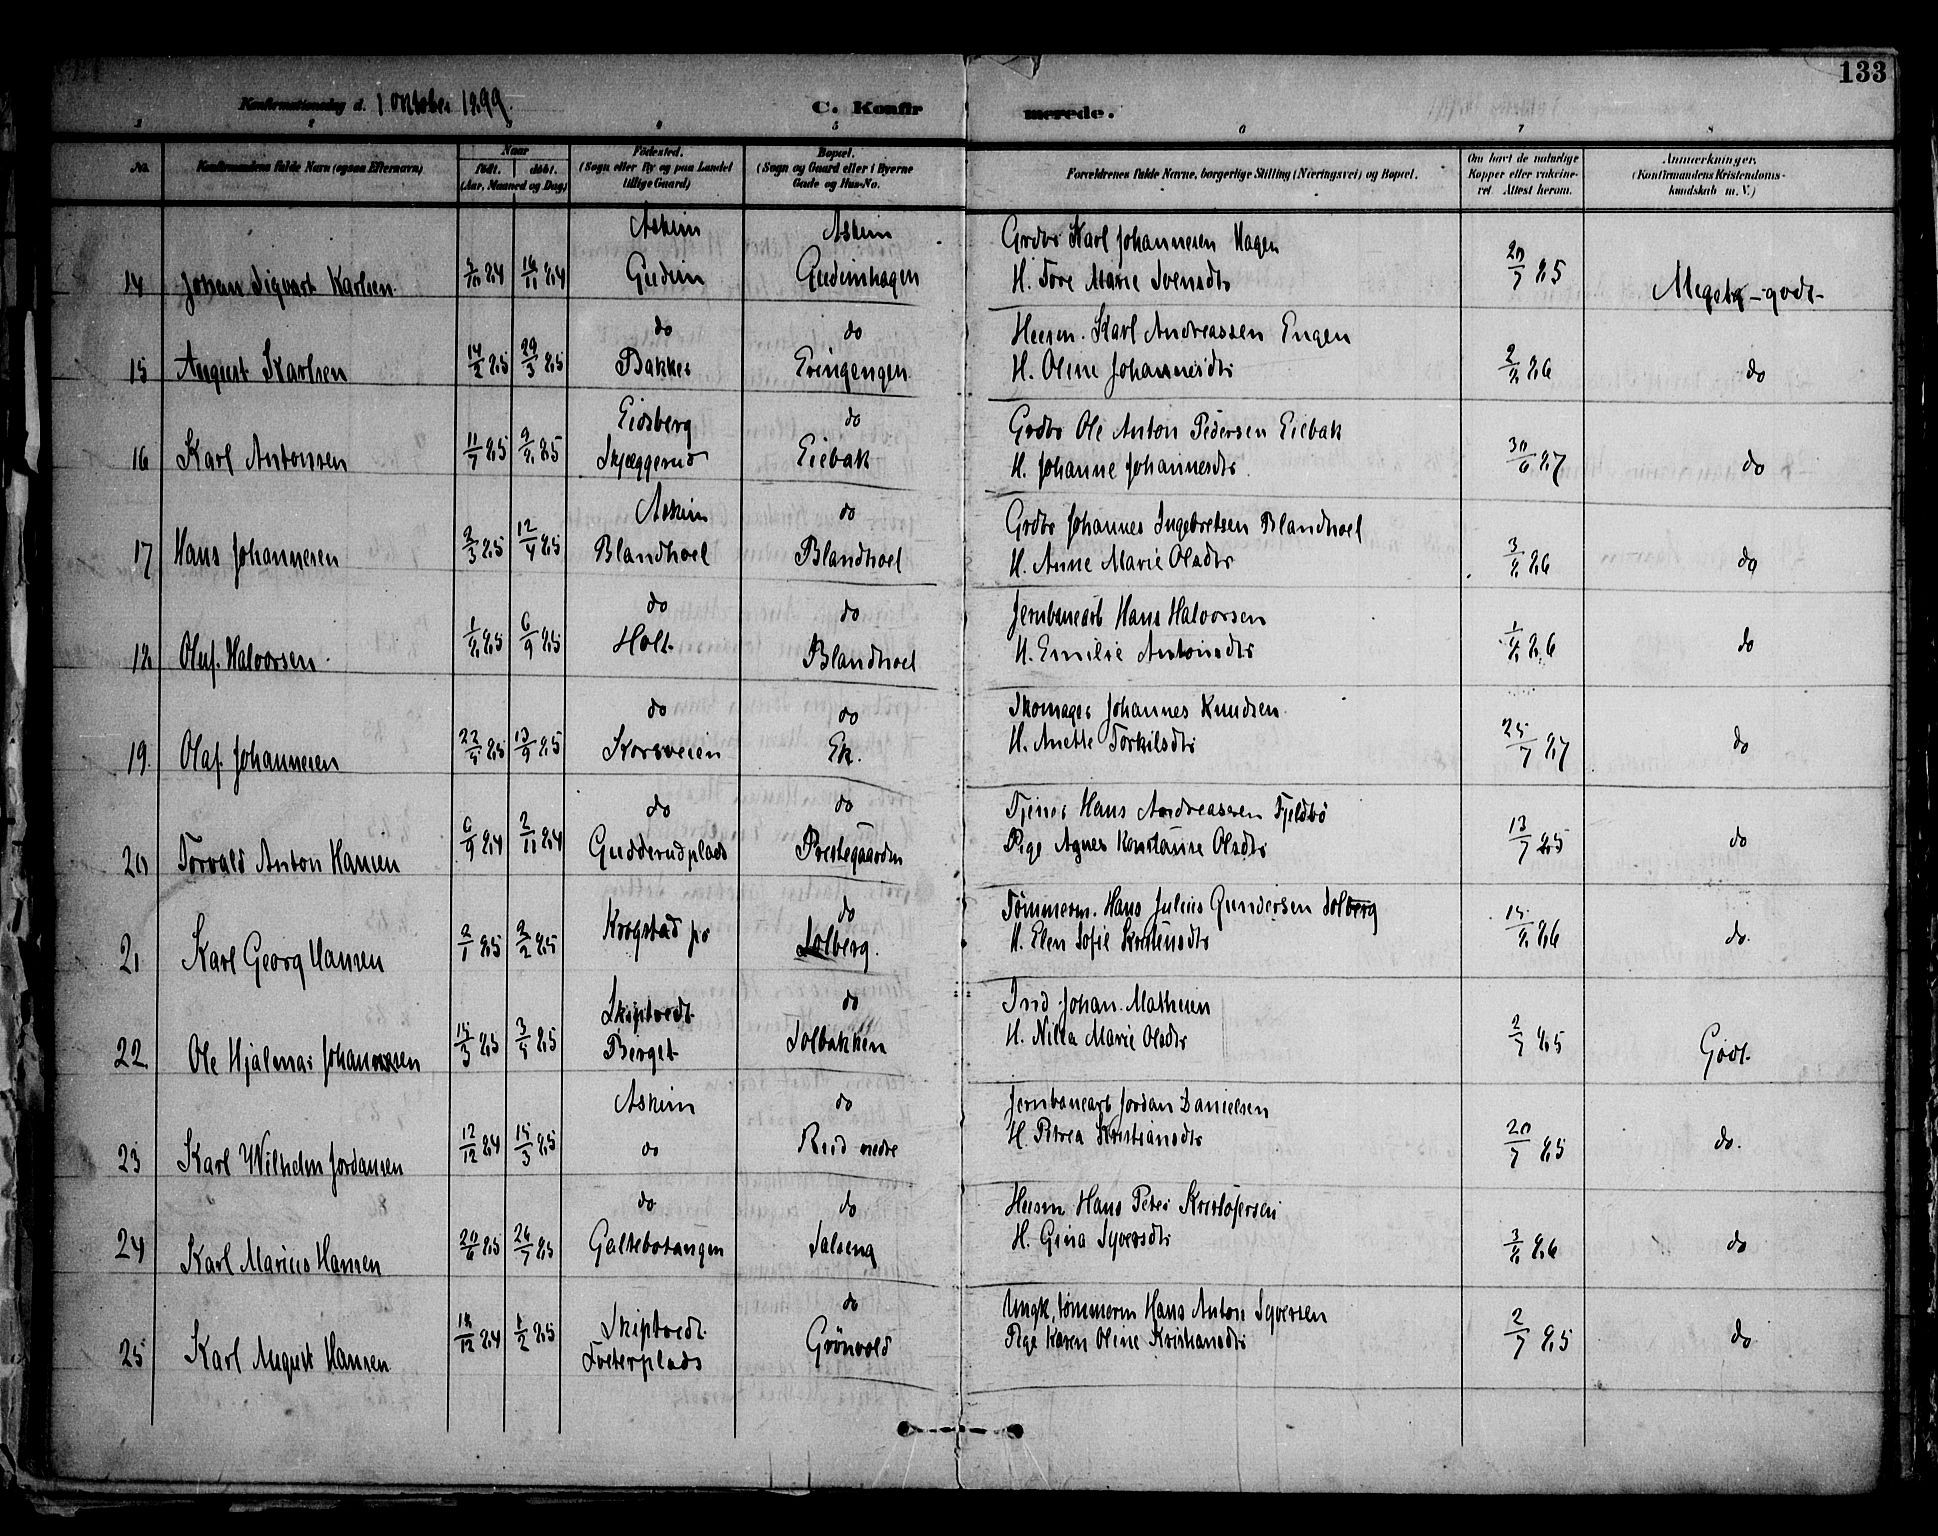 133
Konfirmationsdag d. 1 Oktober 1899. C. Konfirmerede.
1 2 3 4 5 6 7 8
No. Konfirmandens fulde Navn (ogsaa Efternavn) Naar født. døbt. (Aar, Maaned og Dag) Fødested. (Sogn eller By og paa Landet tillige Gaard) Bopæl. (Sogn og Gaard eller i Byerne Gade og Hus-No. Forældrenes fulde Navne, borgerlige Stilling (Næringsvei) og Bopæl. Om havt de naturlige Kopper eller vakcineret. Attest herom. Anmærkninger. (Konfirmandens Kristendomskundskab m. V.)
Askim Askim Grdbr Karl Johannesen Hagen
14 Johan Sigvart Karlsen 84 16/11 84 Gudim Gudimhagen H. Tore Marie Svensdtr 20/7 85 Meget godt
do do Huusm. Karl Andreassen Engen
15 August Karlsen 14/2 85 29/3 85 Bakker H. Oline Johannesdtr 2/8 86 do
Eidsberg do Grdbr Ole Anton Pedersen Eiebak
16 Karl Antonsen 11/7 85 9/8 85 Skjæggerud Eiebak H. Johanne Johannesdtr. 30/6 87 do
Askim do Grdbr Johannes Ingebretsen Blandhoel
17 Hans Johannesen 2/3 85 12/4 85 Blandhoel Blandhoel H. Anne Marie Olsdtr 3/8 86 do
do do Jernbanearb Hans Halvorsen
18 Oluf Halvorsen 1/8 85 6/9 85 Holt Blandhoel H. Emilie Antonsdtr 1/8 86 do
do do Skomager Johannes Knudsen
19. Olaf Johannesen 85 13/9 85 Korsveien Ek. H. Anette Torkilsdtr 25/7 87 do
do do Tjener Hans Andreassen Fjeldbø
20 Torvald Anton Hansen 6/9 84 2/11 84 Gudderudplads Prestegaarden Pige Agnes Konstanse Olsdtr 13/7 85 do
do Tømmerm. Hans Julius Gundersen Solberg
21 Karl Georg Hansen 2/1 85 85 Krogstad Solberg. H. Elen Sofie Kristensdtr 15/8 86 do.
Skiptvedt do Ind Johan Mathisen
22. Ole Hjalmar Johannessen 15/3 85 3/5 85 Berget Solbakken H. Nilla Marie Olsdtr 2/7 85 Godt.
Askim do Jernbanearb Jordan Danielsen
23 Karl Wilhelm Jordansen 12/12 84 15/3 85 do Rud nedre H. Petrea Kristiansdtr 20/7 85 do.
do do Huusm Hans Peter Kristofersen
24 Karl Marius Hansen 20/6 85 26/7 85 Galtebotangen H. Gina Syversdtr 3/8 86 do
do Ungk. tømmerm Hans Anton Syversen
25 Karl August Hansen 18/12 84 1/2 85 Skiptvedt Tveterplads Grönvold Pige Karen Oline Kristiansdtr 2/7 85 do